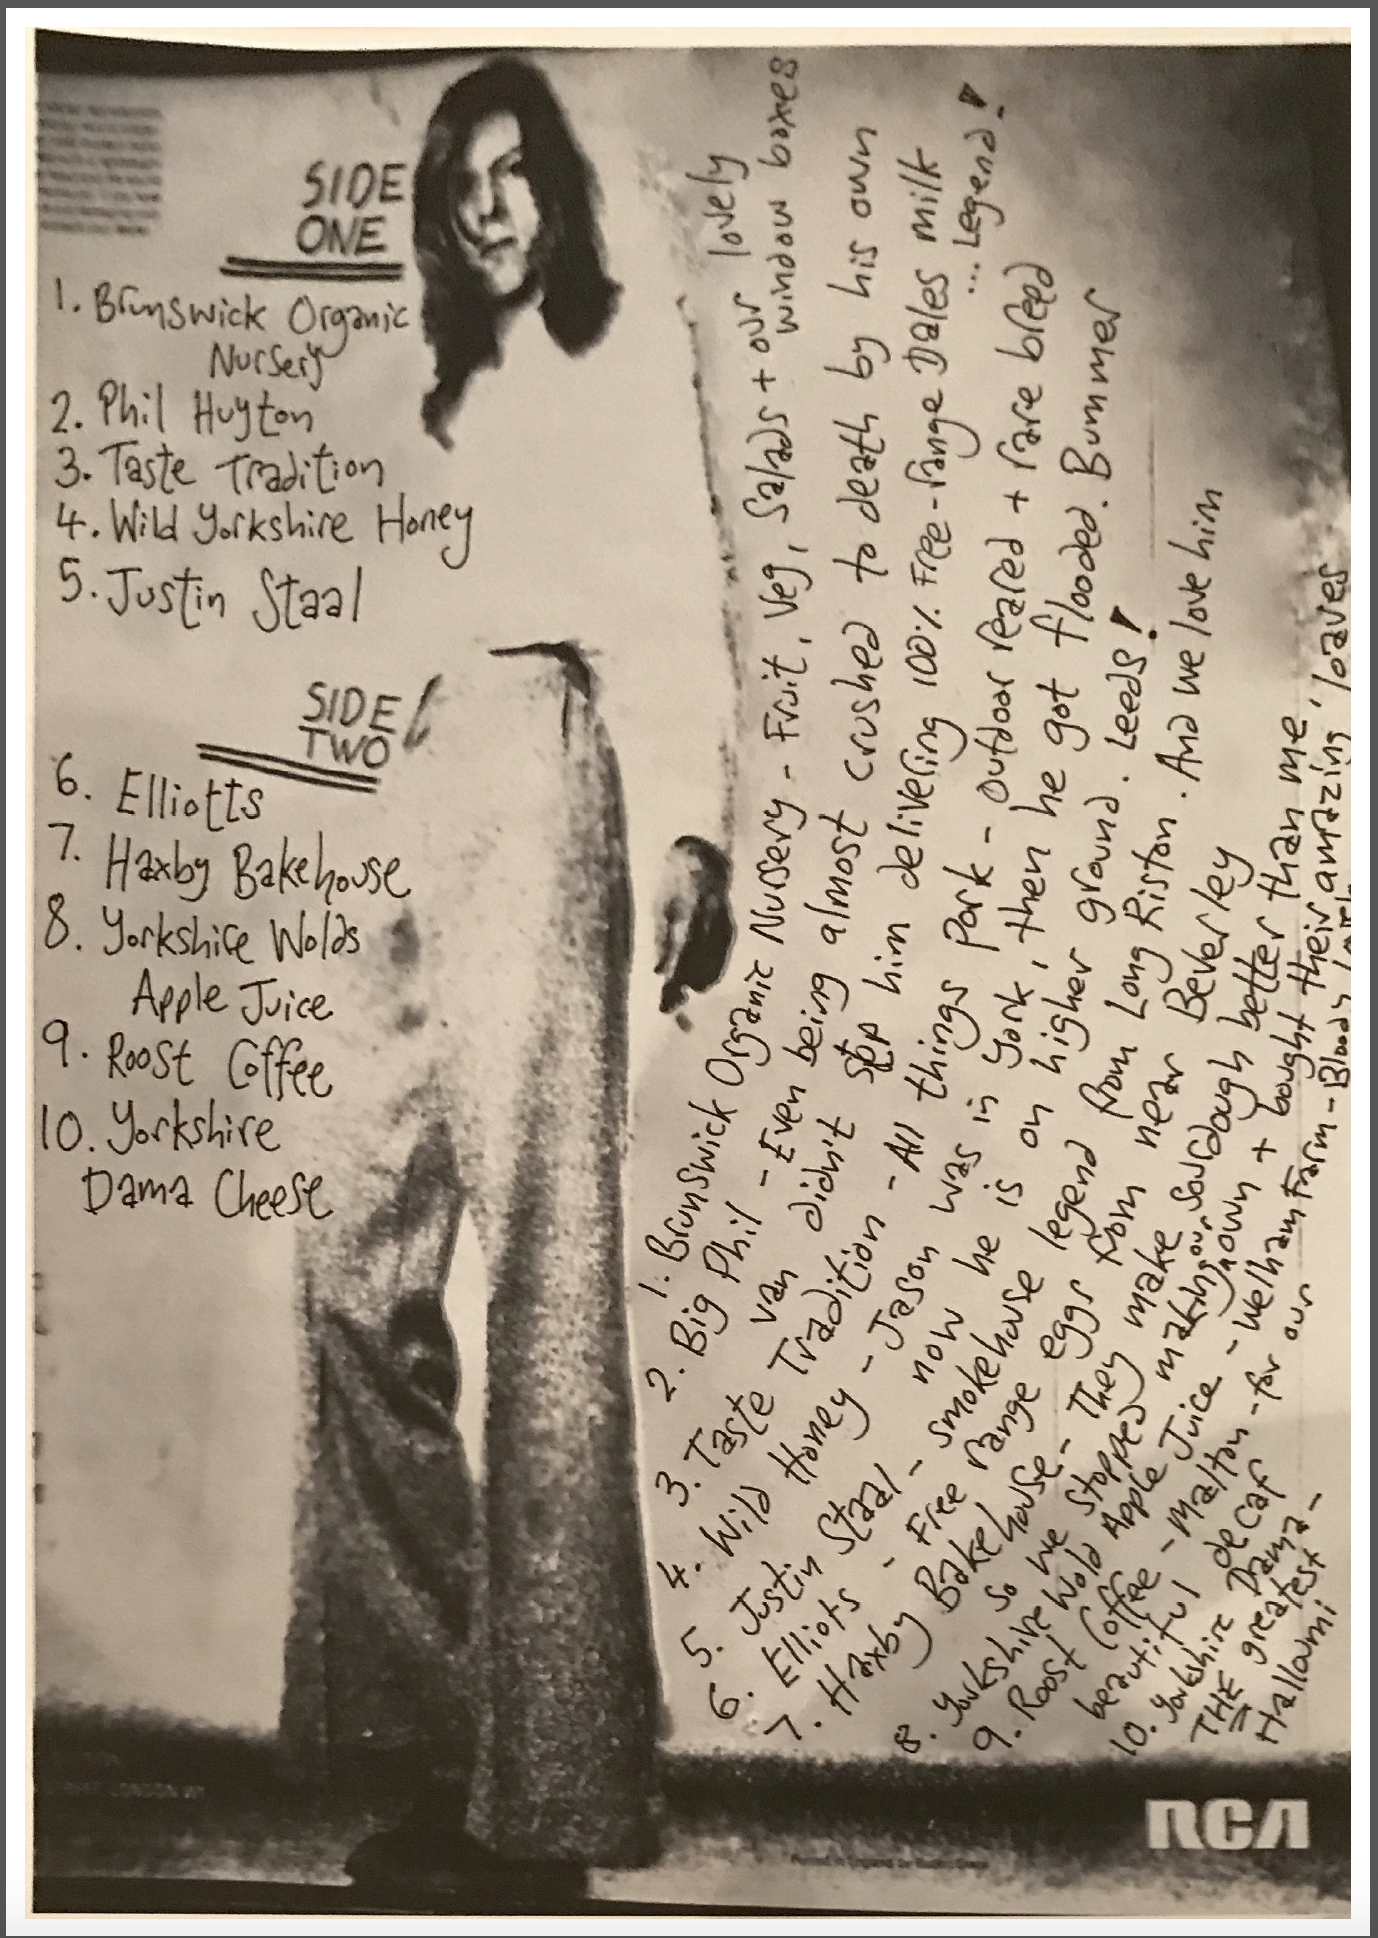 SIDE
ONE
1. Brunswick Organic
Nursery
2. Phil Huyton
3. Taste Tradition
4. Wild Yorkshire Honey
5. Justin Staal
SIDE
TWO
6. Elliotts
7. Haxby Bakehouse
8. Yorkshire Wolds
Apple Juice
9. Roost Coffee
10. Yorkshire
Dama Cheese
1. Brunswick Organic Nursery - Fruit, Veg, Salads + our lovely
window boxes
2. Big Phil - Even being almost crushed to death by his own
van didn't stop him delivering 100% Free-range Dales milk
...Legend!
3. Taste Tradition - All things Pork - Outdoor reared + rare breed
4. Wild Honey - Jason was in York, then he got flooded. Bummer
now he is on higher ground. Leeds!
5. Justin Staal - smokehouse legend from Long Riston. And we love him
6. Elliots - Free range eggs from near Beverley
7. Haxby Bakehouse - They make sourdough better than me,
so we stopped making our own + bought their amazing loaves
8. Yorkshire Wold Apple Juice - Welham Farm - Bloody
9. Roost Coffee - Malton - for our
beautiful decaf
10. Yorkshire Dama -
THE greatest
Halloumi
RCA